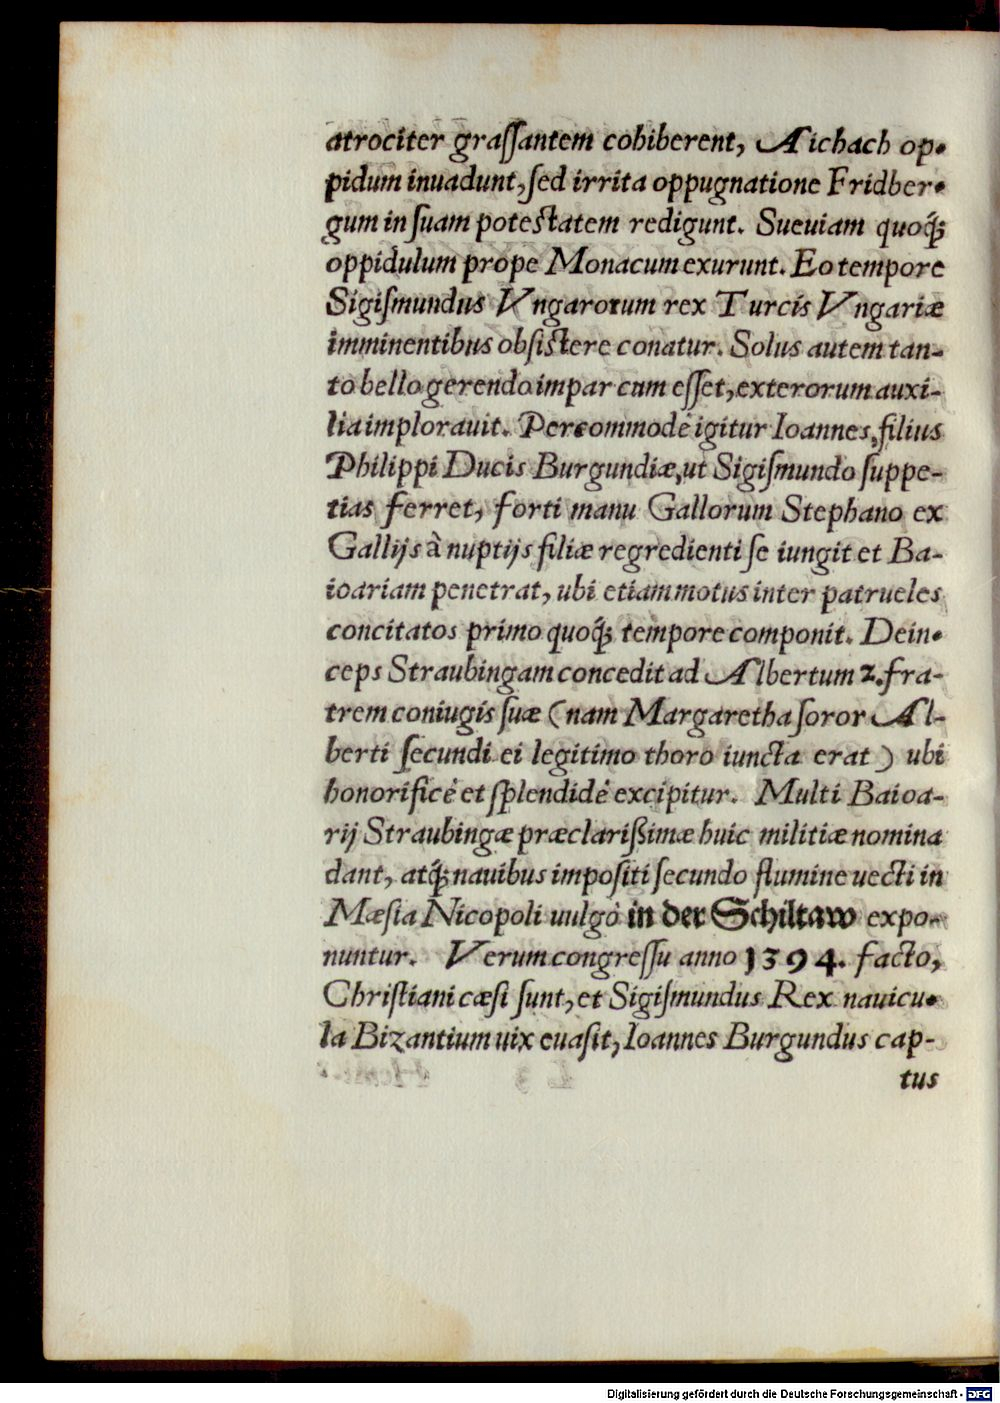 atrociter graſſantem cohiberent, Aichach op-
pidum inuadunt, ſed irrita oppugnatione Fridber-
gum in ſuam poteſtatem redigunt. Sueuiam quoq́;
oppidulum prope Monacum exurunt. Eo tempore
Sigiſmundus Vngarorum rex Turcis Vngariæ
imminentibus obſiſtere conatur. Solus autem tan-
to bello gerendo impar cum eſſet, exterorum auxi-
lia implorauit. Percommodè igitur Ioannes, filius
Philippi Ducis Burgundiæ, ut Sigiſmundo ſuppe-
tias ferret, forti manu Gallorum Stephano ex
Gallijs à nuptijs filiæ regredienti ſe iungit et Ba-
ioariam penetrat, ubi etiam motus inter patrueles
concitatos primo quoq́; tempore componit. Dein-
ceps Straubingam concedit ad Albertum 2. fra-
trem coniugis ſuæ (nam Margaretha ſoror Al-
berti ſecundi ei legitimo thoro iuncta erat) ubi
honorificè et ſplendidè excipitur. Multi Baioa-
rij Straubingæ præclarißimæ huic militiæ nomina
dant, atq́; nauibus impoſiti ſecundo flumine uecti in
Mæſia Nicopoli uulgò in der Schiltaw expo-
nuntur. Verum congreſſu anno 1394. facto,
Chriſtiani cæſi ſunt, et Sigiſmundus Rex nauicu-
la Bizantium uix euaſit, Ioannes Burgundus cap-
tus
Digitalisierung gefördert durch die Deutsche Forschungsgemeinschaft - DFG